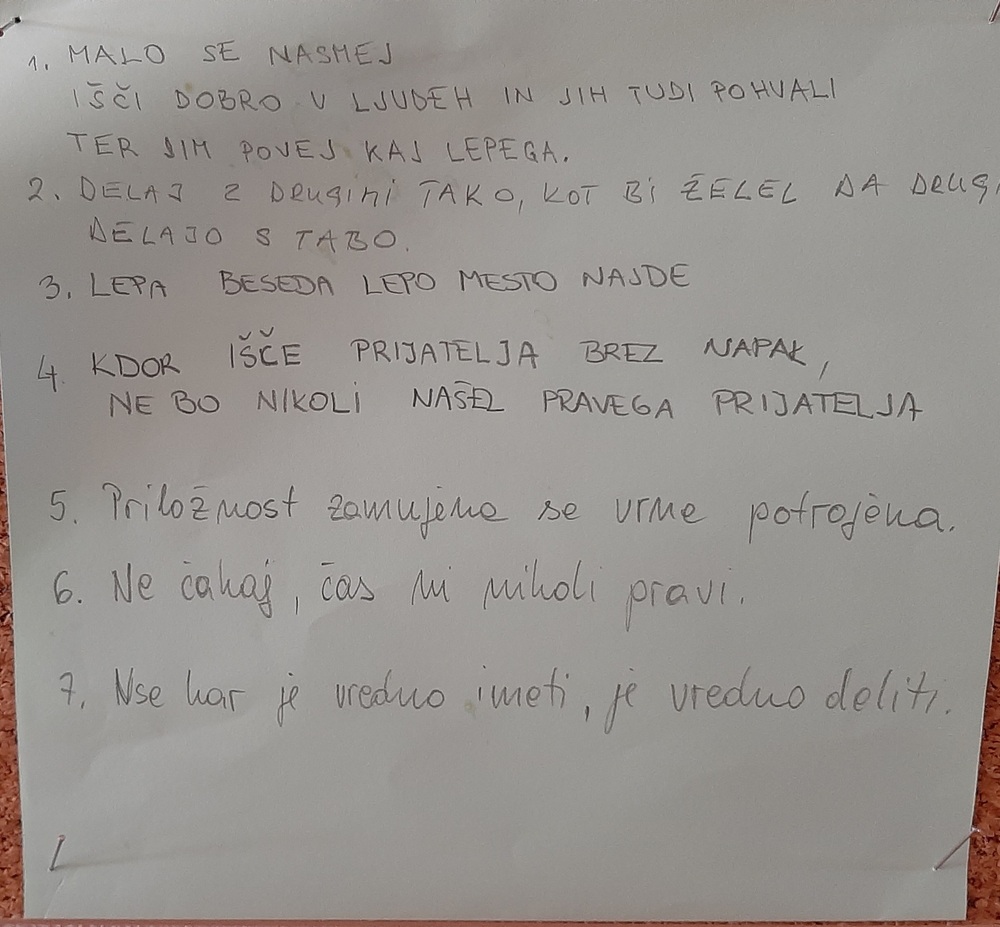 1. MALO SE NASMEJ
IŠČI DOBRO V LJUDEH IN JIH TUDI POHVALI
TER JIM POVEJ KAJ LEPEGA.
2. DELAJ Z DRUGIMI TAKO, KOT BI ŽELEL DA DRUGI
DELAJO S TABO.
3. LEPA BESEDA LEPO MESTO NAJDE
4. KDOR IŠČE PRIJATELJA BREZ NAPAK,
NE BO NIKOLI NAŠEL PRAVEGA PRIJATELJA
5. Priložnost zamujena se vrne potrojena.
6. Ne čakaj, čas ni nikoli pravi.
7. Vse kar je vredno imeti, je vredno deliti.